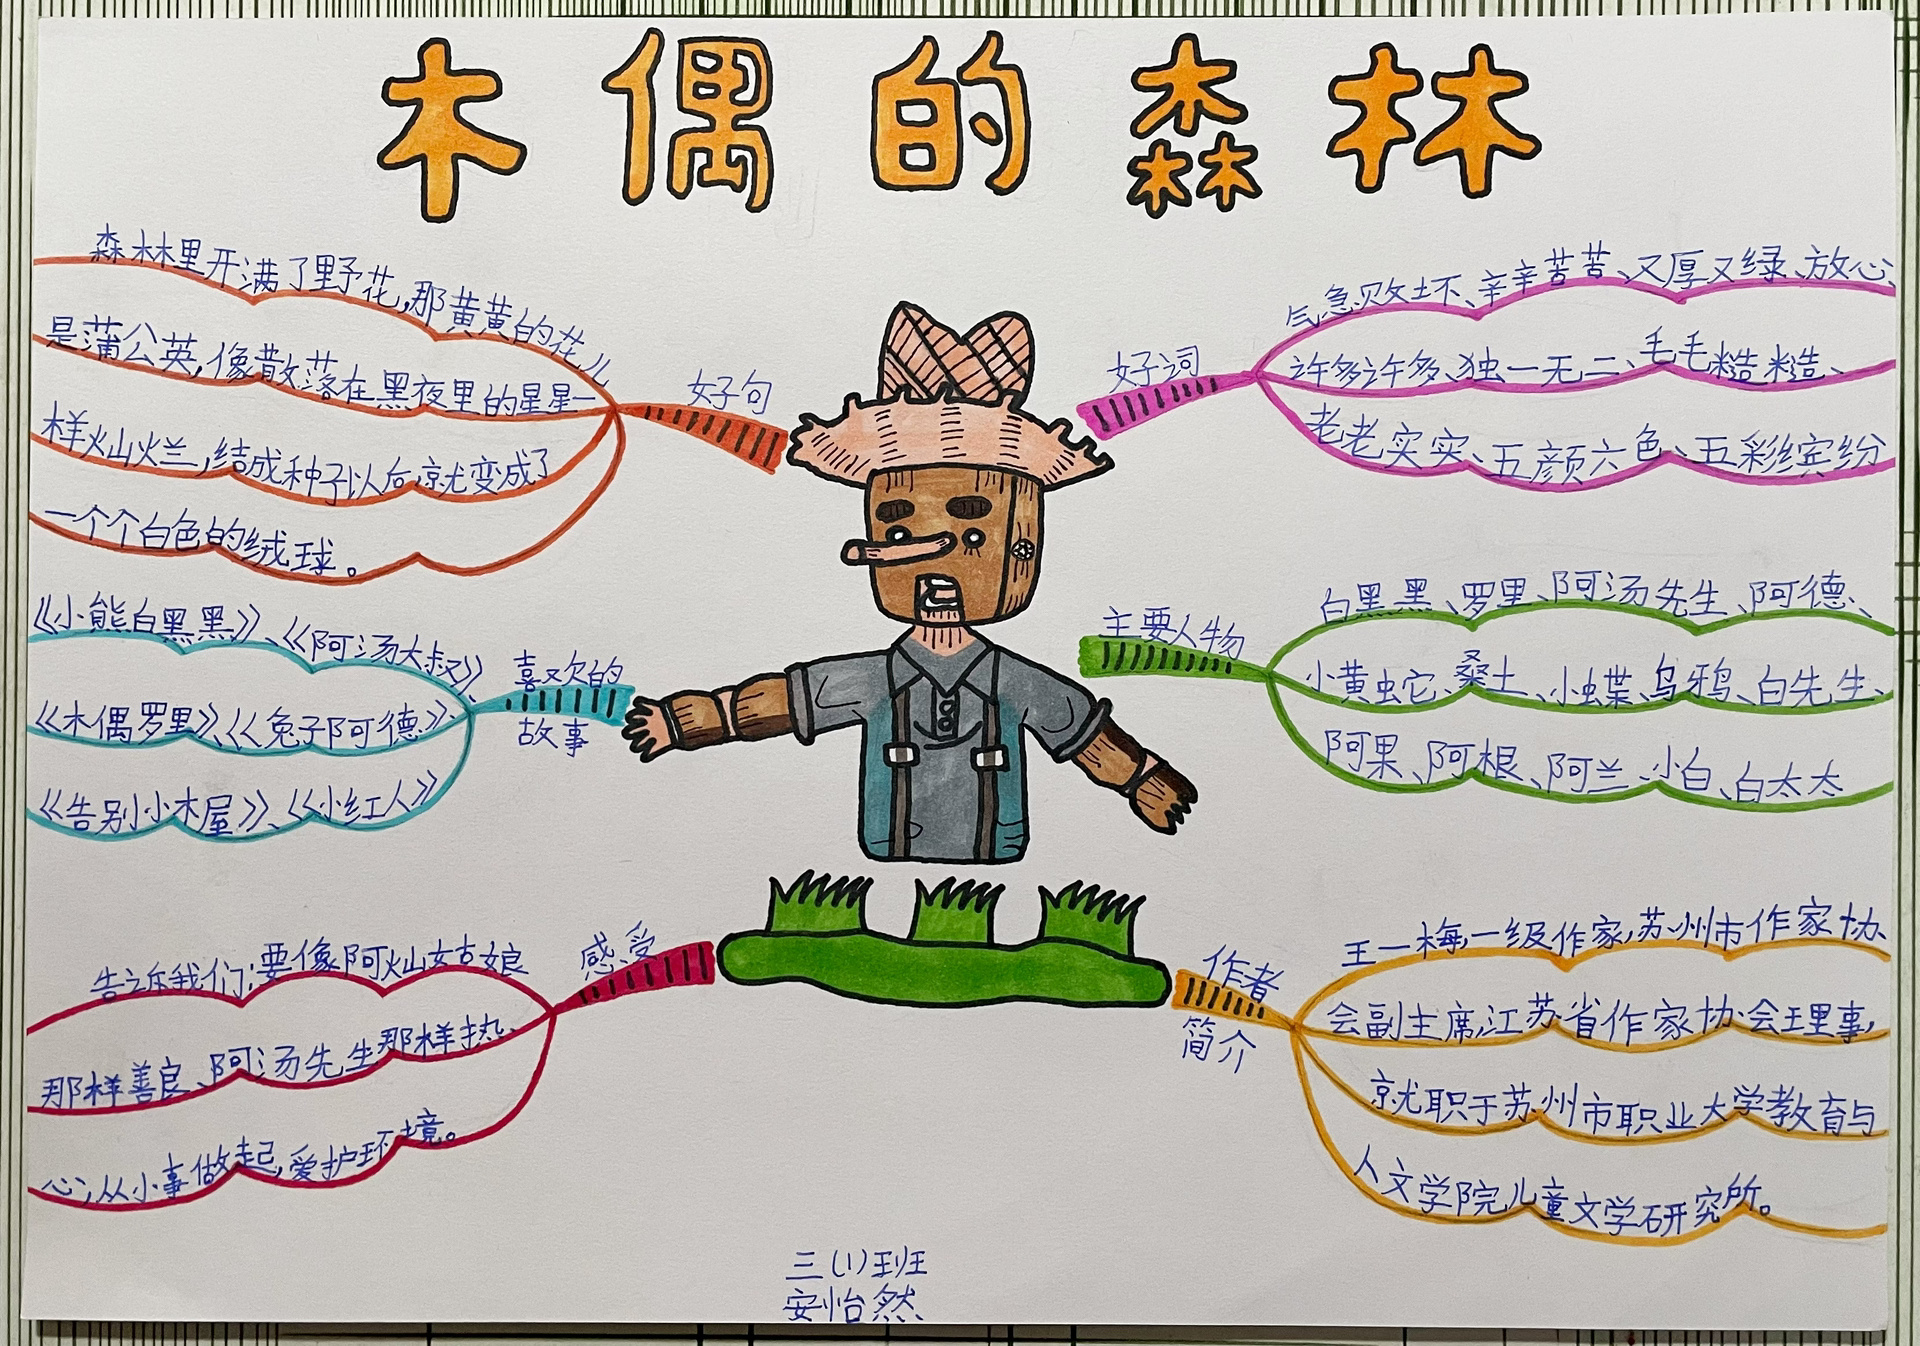 木偶的森林
好句
森林里开满了野花,那黄黄的花儿
是蒲公英,像散落在黑夜里的星星一
样灿烂,结成种子以后,就变成了
一个个白色的绒球。
喜欢的
故事
《小熊白黑黑》、《阿汤大叔》
《木偶罗里》、《兔子阿德》、
《告别小木屋》、《小红人》
感受
告诉我们:要像阿灿姑娘
那样善良、阿汤先生那样热
心,从小事做起,爱护环境。
好词
气急败坏、辛辛苦苦、又厚又绿、放心、
许许多多、独一无二、毛毛糙糙、
老老实实、五颜六色、五彩缤纷
主要人物
白黑黑、罗里、阿汤先生、阿德、
小黄蛇、桑土、小蝶、乌鸦、白先生、
阿果、阿根、阿兰、小白、白太太
作者
简介
王一梅,一级作家,苏州市作家协
会副主席,江苏省作家协会理事,
就职于苏州市职业大学教育与
人文学院儿童文学研究所。
三(1)班
安怡然